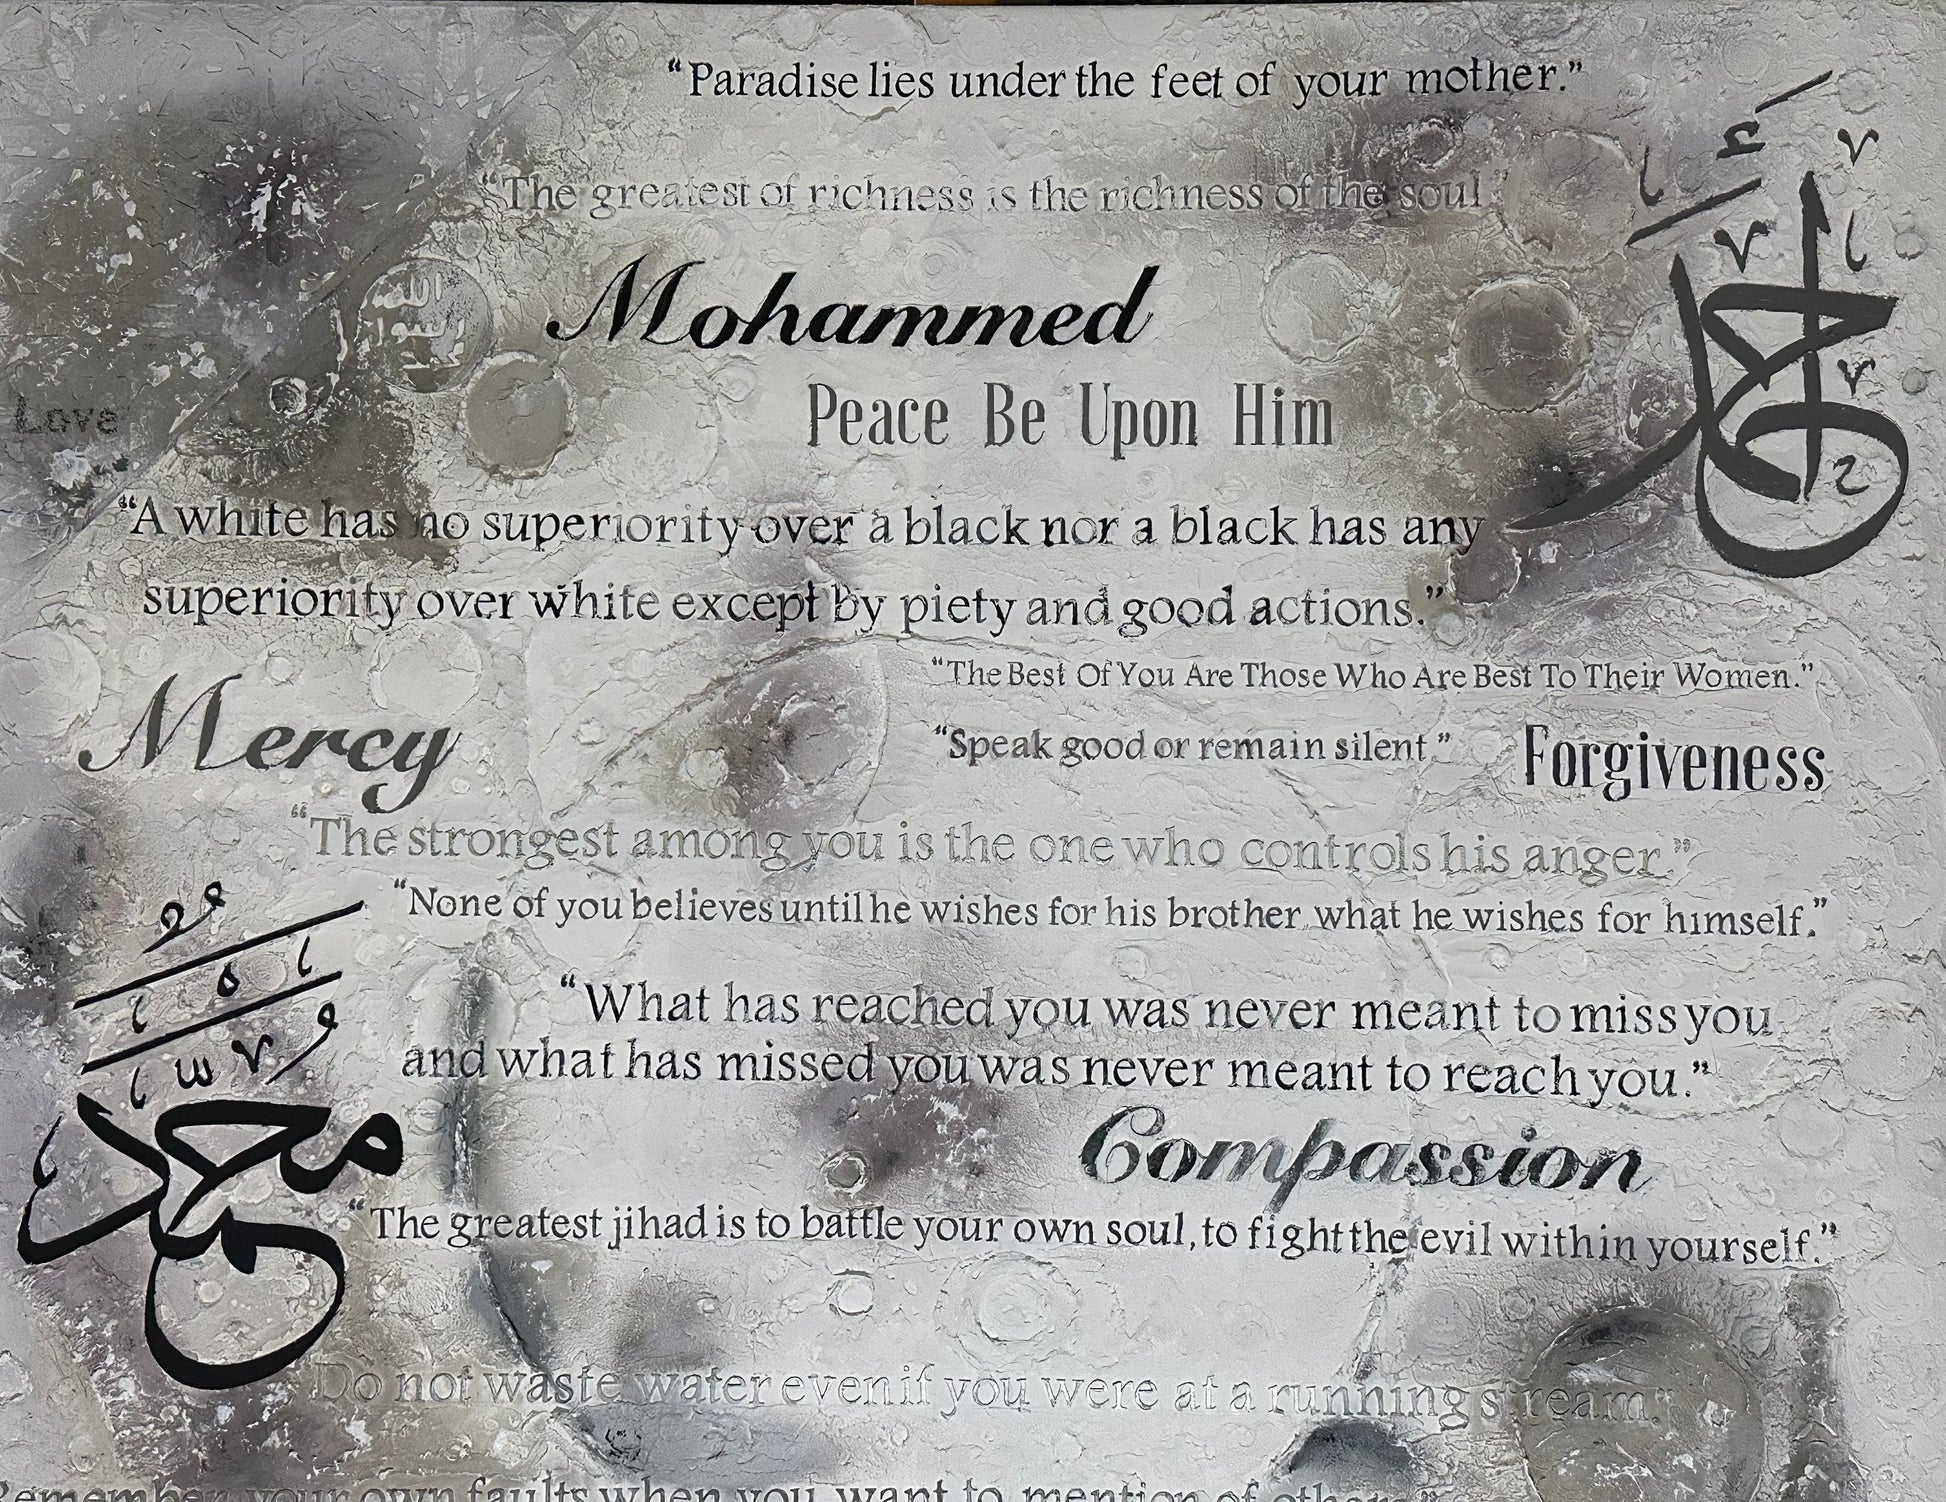 “Paradise lies under the feet of your mother.”
“The greatest of richness is the richness of the soul”
الله
رسول
محمد
Mohammed
Peace Be Upon Him
Love
محمد
“A white has no superiority over a black nor a black has any
superiority over white except by piety and good actions.”
“The Best Of You Are Those Who Are Best To Their Women.”
Mercy
“Speak good or remain silent.”
Forgiveness
“The strongest among you is the one who controls his anger.”
“None of you believes until he wishes for his brother what he wishes for himself.”
“What has reached you was never meant to miss you
and what has missed you was never meant to reach you.”
محمد
Compassion
“The greatest jihad is to battle your own soul, to fight the evil within yourself.”
Do not waste water even if you were at a running stream.”
Remember your own faults when you want to mention of others.”